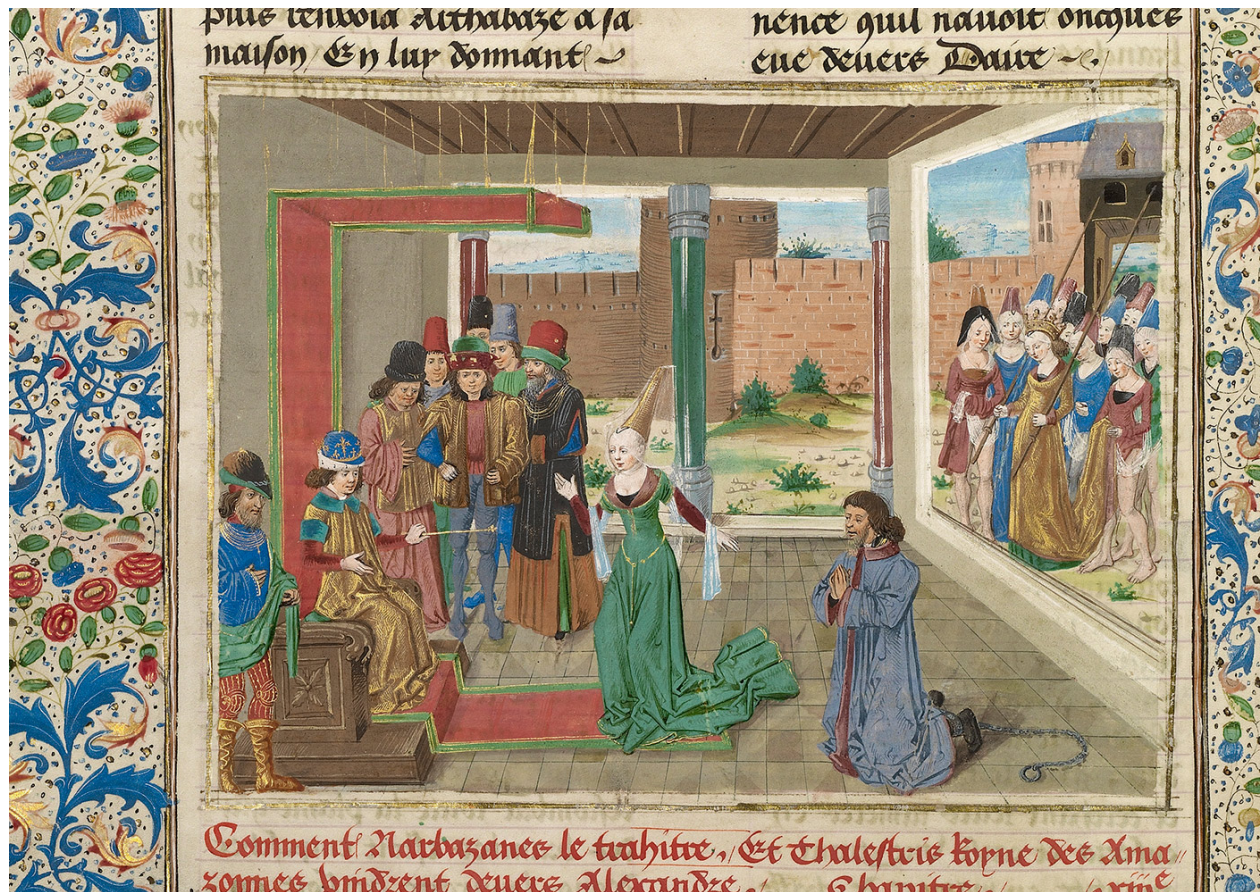 puis renvoia Arthabaze a sa
maison Et luy donnant
nence quil nauoit oncques
eue deuers Daire
Comment Narbazanes le trahitre, Et Thalestris Royne des Ama
zonnes vindrent deuers Alexandre. Chapitre. xviiie